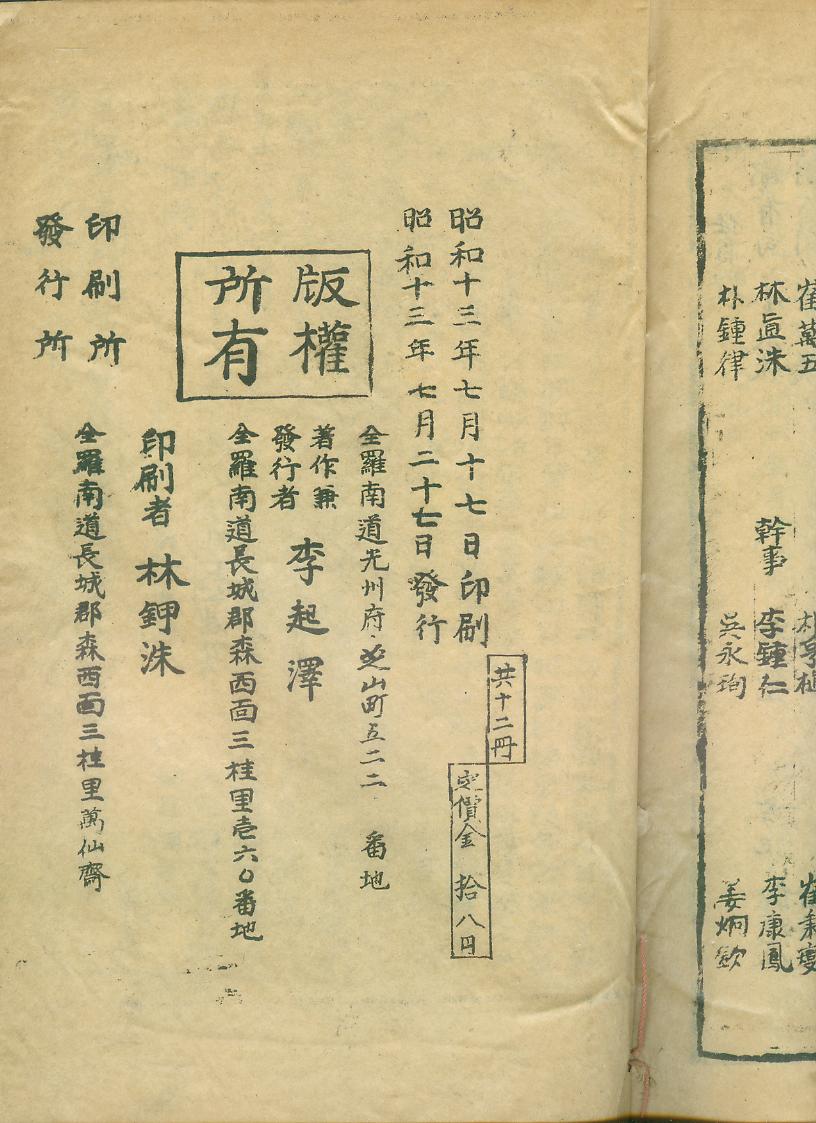 崔萬五
林眞洙
朴鍾律
幹事 李鍾仁
吳永珣
李康鳳
姜炯
共十二冊
定價金 拾八円
昭和十三年七月十七日印刷
昭和十三年七月二十七日發行
全羅南道光州府芝山町五二二 番地
著作兼
發行者 李起澤
全羅南道長城郡森西面三桂里壱六〇番地
版權
所有
印刷者 林鉀洙
印刷所
全羅南道長城郡森西面三桂里萬仙齋
發行所